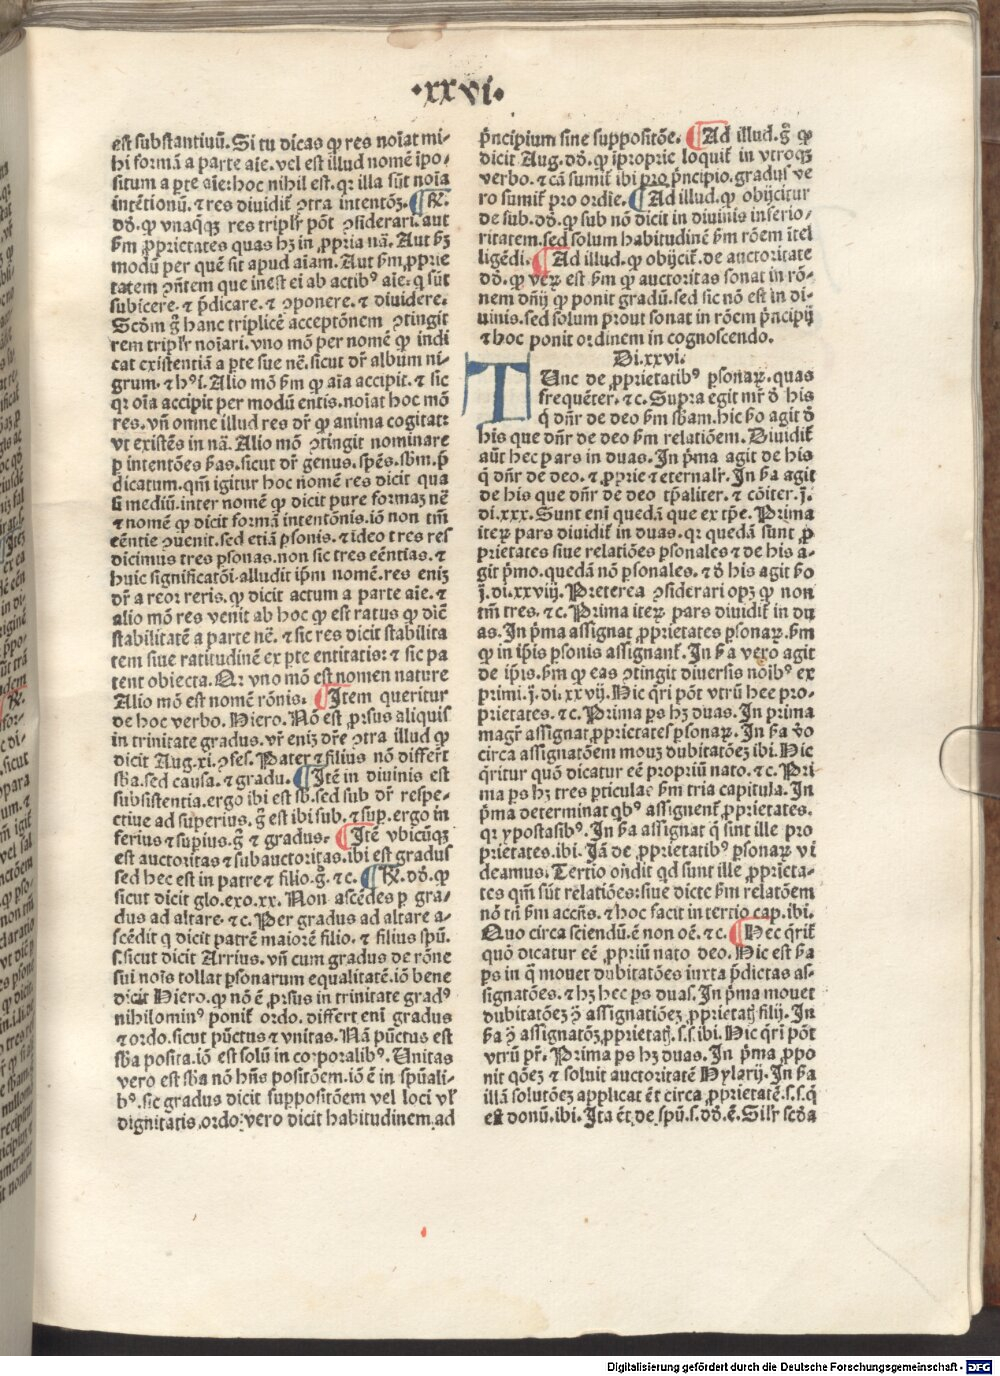 ·xxvi·
est substantiuū. Si tu dicas ꝙ res noīat mi-
hi formā a parte aīe. vel est illud nomē īpo-
situm a ꝑte aīe: hoc nihil est. qꝛ illa sūt noīa
intētionū. ⁊ res diuidiť ꝯtra intentōꝫ. ¶ R̄.
dd̄. ꝙ vnaqꝗꝫ res triplr̄ pōt ꝯsiderari. aut
ẜm ꝓprietates quas hꝫ in ꝓpria nā. Aut ẜꝫ
modū per quē sit apud aīam. Aut ẜm ꝓprie
tatem ꝯn̄tem que inest ei ab actibꝰ aīe. q̄ sūt
subicere. ⁊ p̄dicare. ⁊ ꝯponere. ⁊ diuidere.
Scd̄m g̊ hanc triplicē acceptōnem ꝯtingit
rem triplr̄ noīari. vno mō per nomē ꝙ indi
cat existentiā a ꝑte sue nē. sicut dr̄ album ni-
grum. ⁊ hꝰī. Alio mō ẜm ꝙ aīa accipit. ⁊ sic
qꝛ oīa accipit per modū entis. noīat hoc mō
res. vn̄ omne illud res dr̄ ꝙ anima cogitat:
vt existēs in nā. Alio mō ꝯtingit nominare
ꝑ intentōes ẜas. sicut dr̄ genus. spēs. sb̄m. p̄
dicatum. qm̄ igitur hoc nomē res dicit qua
si mediū. inter nomē ꝙ dicit pure formaꝫ nē
⁊ nomē ꝙ dicit formā intentōnis. iō non tm̄
eēntie ꝯuenit. sed etiā ꝑsonis. ⁊ ideo tres res
dicimus tres ꝑsonas. non sic tres eēntias. ⁊
huic significatōi. alludit ip̄m nomē. res eniꝫ
dr̄ a reor reris. ꝙ dicit actum a parte aīe. ⁊
alio mō res venit ab hoc ꝙ est ratus ꝙ dīc̄
stabilitatē a parte nē. ⁊ sic res dicit stabilita
tem siue ratitudinē ex ꝑte entitatis: ⁊ sic pa
tent obiecta. Qꝛ vno mō est nomen nature
Alio mō est nomē rōnis. ¶ Item queritur
de hoc verbo. Hiero. Nō est ꝓrsus aliquis
in trinitate gradus. vr̄ eniꝫ dr̄e ꝯtra illud ꝙ
dicit Aug. xi. ꝯfes. Pater ⁊ filius nō differt
sb̄a. sed causa. ⁊ gradu. ¶ Itē in diuinis est
subsistentia. ergo ibi est sb̄. sed sub dr̄ respe-
ctiue ad superius. g̊ est ibi sub. ⁊ suꝑ. ergo in
ferius ⁊ suꝑius. g̊ ⁊ gradus. ¶ Itē vbicūqꝫ
est auctoritas ⁊ subauctoritas. ibi est gradus
sed hec est in patre ⁊ filio. g̊. ⁊c. ¶ R̄. dd̄. ꝙ
sicut dicit glo. exo. xx. Non ascēdes ꝑ gra-
dus ad altare. ⁊c. Per gradus ad altare a-
scēdit q dicit patrē maiorē filio. ⁊ filius spū.
s. sicut dicit Arrius. vn̄ cum gradus de rōne
sui nois tollat ꝑsonarum equalitatē. iō bene
dicit Hiero. ꝙ nō ē ꝓrsus in trinitate gradꝰ
nihilominꝰ poniť ordo. differt enī gradus
⁊ ordo. sicut pūctus ⁊ vnitas. Nā pūctus est
sb̄a posita. iō est solū in corporalibꝰ. Unitas
vero est sb̄a nō hn̄s positōem. iō ē in spūali-
bꝰ. sic gradus dicit suppositōem vel loci vl̄
dignitatis. ordo vero dicit habitudinem ad
p̄ncipium sine suppositōe. ¶ Ad illud. g̊ ꝙ
dicit Aug. dd̄. ꝙ īproprie loquiť in vtroqꝫ
verbo. ⁊ cā sumiť ibi pro p̄ncipio. gradus ve
ro sumiť pro ordīe. ¶ Ad illud. ꝙ obijcitur
de sub. dd̄. ꝙ sub nō dicit in diuinis inferio-
ritatem. sed solum habitudinē ẜm rōem ītel
ligēdi. ¶ Ad illud. ꝙ obijciť. de auctoritate
dd̄. ꝙ verꝫ est ẜm ꝙ auctoritas sonat in rō-
nem dn̄ij ꝙ ponit gradū. sed sic nō est in di-
uinis. sed solum prout sonat in rōem p̄ncipij
⁊ hoc ponit ordinem in cognoscendo.
Di. xxvi.
TUnc de ꝓprietatibꝰ ꝑsonaꝝ. quas
frequēter. ⁊c. Supra egit mr̄ d̄ his
q̄ dn̄r de deo ẜm sb̄am. hic ẜo agit d̄
his que dn̄r de deo ẜm relatiōem. Diuidiť
aūt hec pars in duas. In p̄ma agit de his
q̄ dn̄r de deo. ⁊ ꝓprie ⁊ eternalr̄. In ẜa agit
de his que dn̄r de deo tꝑaliter. ⁊ cōiter. j̄.
di. xxx. Sunt enī quedā que ex tꝑe. Prima
iteꝝ pars diuidiť in duas. qꝛ quedā sunt ꝓ
prietates siue relatiōes ꝑsonales ⁊ de his a-
git p̄mo. quedā nō ꝑsonales. ⁊ d̄ his agit ẜo
j̄. di. xxviij. Preterea ꝯsiderari opꝫ ꝙ non
tm̄ tres. ⁊c. Prima iteꝝ pars diuidiť in du
as. In p̄ma assignat ꝓprietates ꝑsonaꝝ. ẜm
ꝙ in ip̄is ꝑsonis assignanť. In ẜa vero agit
de ip̄is. ẜm ꝙ eas ꝯtingit diuersis nōibꝰ ex
primi. j̄. di. xxvij. Hic q̄ri pōt vtrū hee pro-
prietates. ⁊c. Prima ꝑs hꝫ duas. In prima
magr̄ assignat ꝓprietates ꝑsonaꝝ. In ẜa v̄o
circa assignatōem mouꝫ dubitatōeꝫ ibi. Hic
q̄ritur quō dicatur eē propriū nato. ⁊c. Pri
ma ꝑs hꝫ tres ꝑticulas ẜm tria capitula. In
p̄ma determinat qbꝰ assignenť ꝓprietates.
qꝛ ypostasibꝰ. In ẜa assignat q̄ sint ille pro
prietates. ibi. Iā de ꝓprietatibꝰ ꝑsonaꝝ vi
deamus. Tertio ondit qd sunt ille ꝓprieta-
tes qm̄ sūt relatiōes: siue dicte ẜm relatōem
nō tn̄ ẜm accn̄s. ⁊ hoc facit in tertio cap. ibi.
Quo circa sciendū. ē non oē. ⁊c. ¶ Hec q̄riť
quō dicatur eē ꝓpriū nato deo. Hic est ẜa
ꝑs in q̄ mouet dubitatōes iuxta p̄dictas as-
signatōes. ⁊ hꝫ hec ꝑs duas. In p̄ma mouet
dubitatōeꝫ ꝯ̄ assignatiōeꝫ ꝓprietatꝭ filij. In
ẜa ꝯ̄ assignatōꝫ ꝓprietatꝭ. s. s. ibi. Hic q̄ri pōt
vtrū pr̄. Prima ꝑs hꝫ duas. In p̄ma ꝓpo
nit qōeꝫ ⁊ soluit auctoritatē Hylarij. In ẜa
illā solutōeꝫ applicat ēt circa ꝓprietatē. s. s. q̄
est donū. ibi. Ita ēt de spū. s. dd̄. ē. Silr̄ scd̄a
Digitalisierung gefördert durch die Deutsche Forschungsgemeinschaft - DFG